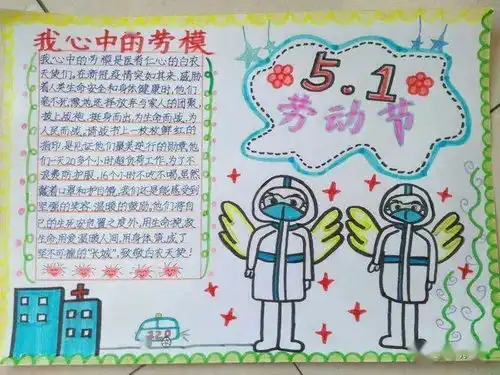 我心中的劳模
我心中的劳模是医者仁心的白衣
天使们。在新冠疫情突如其来,威胁
着人类生命安全和身体健康时,他们
毫不犹豫地选择放弃与家人的团聚,
披上战袍,挺身而出,为生命而战,为
人民而战。请战书上一枚枚鲜红的
指印,是见证他们最美逆行的勋章他
们一天20多个小时超负荷工作,为了不
浪费防护服,16个小时不吃不喝,虽然
戴着口罩和护目镜,我们还是能感受到
坚强的笑容、温暖的鼓励。他们将自
己的生死安危置之度外,用生命挽救
生命,用爱温暖人间,用身体筑成了
坚不可摧的"长城",致敬白衣天使!
5.1
劳动节
120